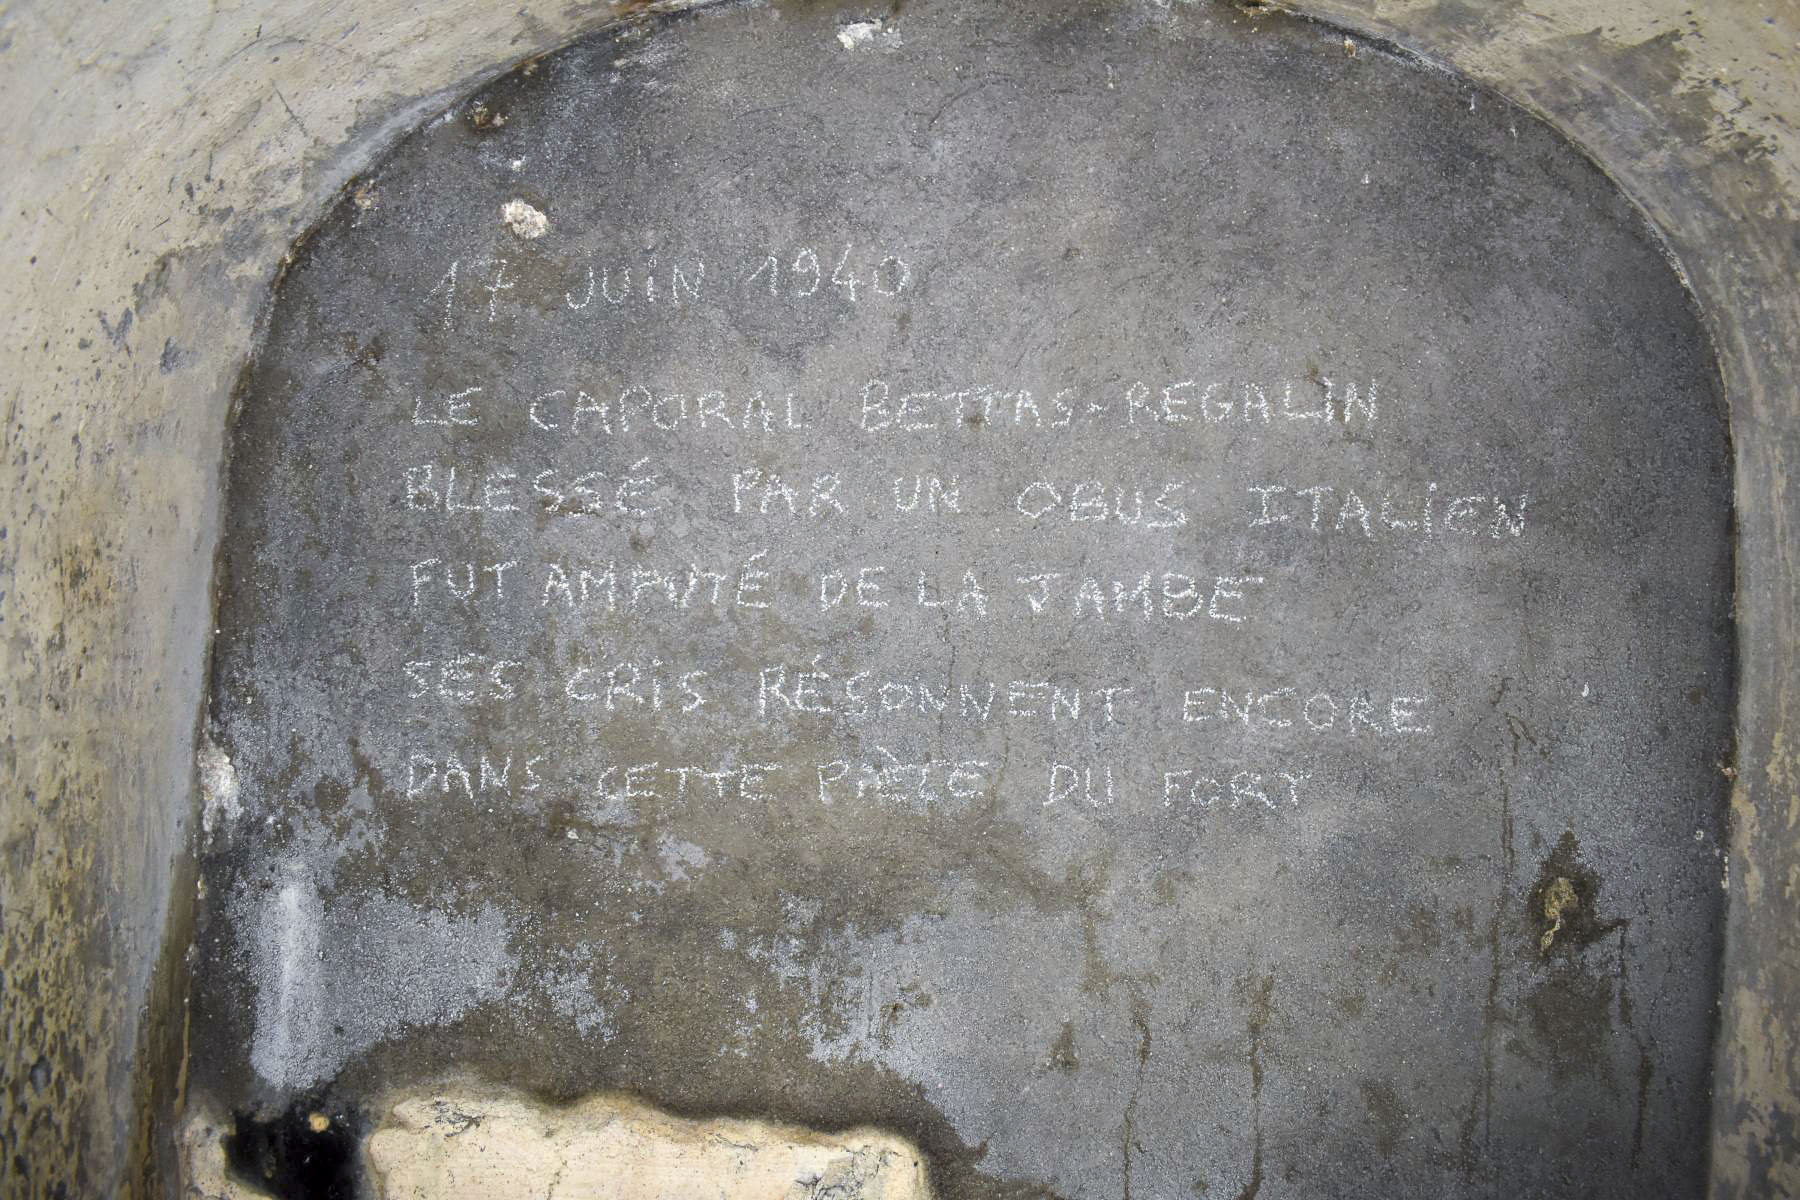 17 JUIN 1940
LE CAPORAL BETTAS-REGALIN
BLESSÉ PAR UN OBUS ITALIEN
FUT AMPUTÉ DE LA JAMBE
SES CRIS RÉSONNENT ENCORE
DANS CETTE PIÈCE DU FORT